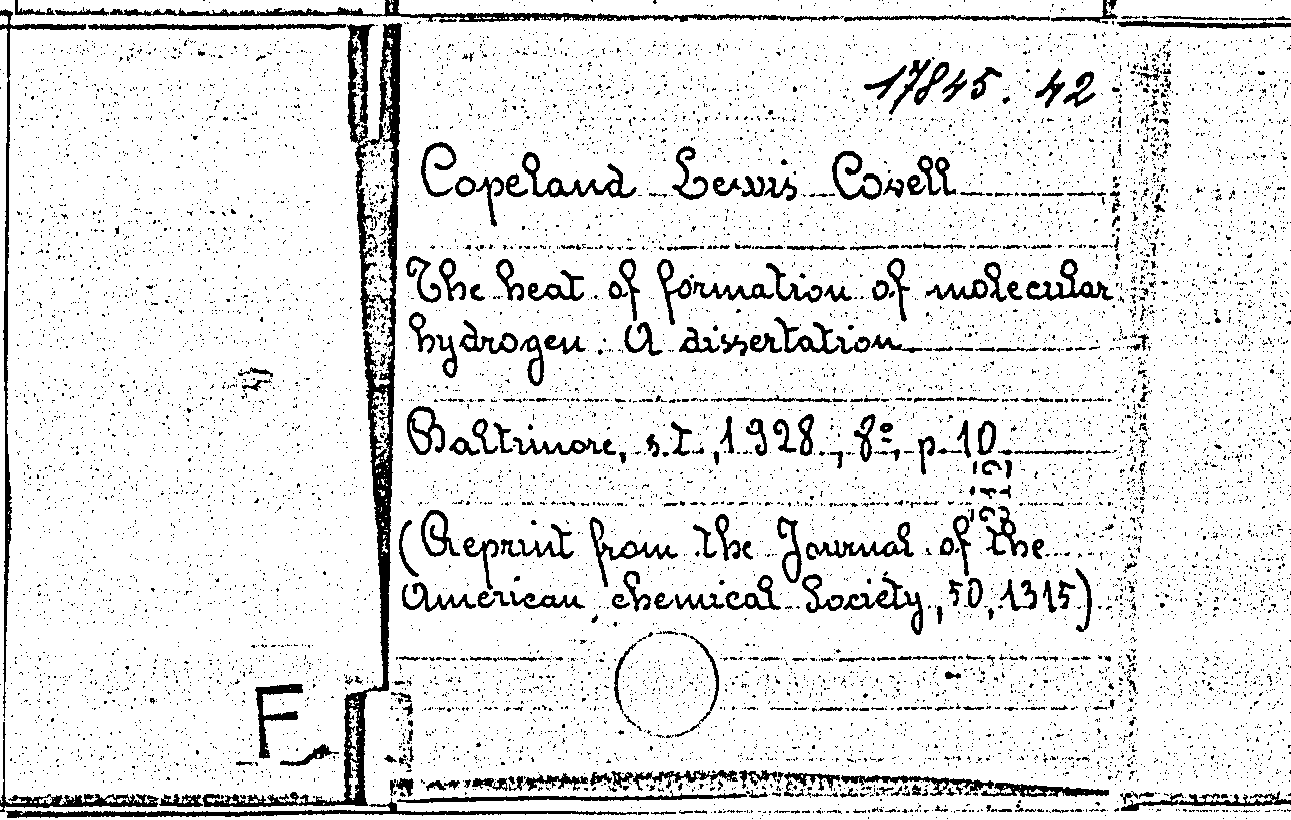 17845. 42
Copeland Lewis Covell
The heat of formation of molecular
hydrogen. A dissertation
Baltimore, s.t., 1928, 8º, p. 10
(Reprint from the Journal of the
American chemical Society, 50, 1315)
F